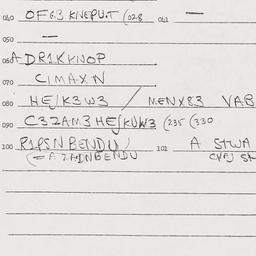 040 OF6.3 KNEPUT (028 042 —
050 —
060 A DR1KKNOP
070 CIMAXN
080 HE/K3W3 / MENX83 VAB
090 C37AM3 HE/KUW3 (235 (330
100 R1PSN BENDU/ 102 A STWA
(= A ZAINBENDU